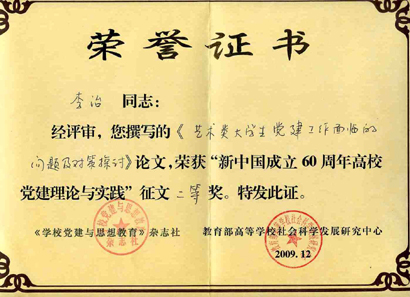 荣誉证书
李治 同志:
经评审,您撰写的《艺术类大学生党建工作面临的
问题及对策探讨》论文,荣获“新中国成立60周年高校
党建理论与实践”征文二等奖。特发此证。
《学校党建与思想教育》杂志社 教育部高等学校社会科学发展研究中心
2009.12